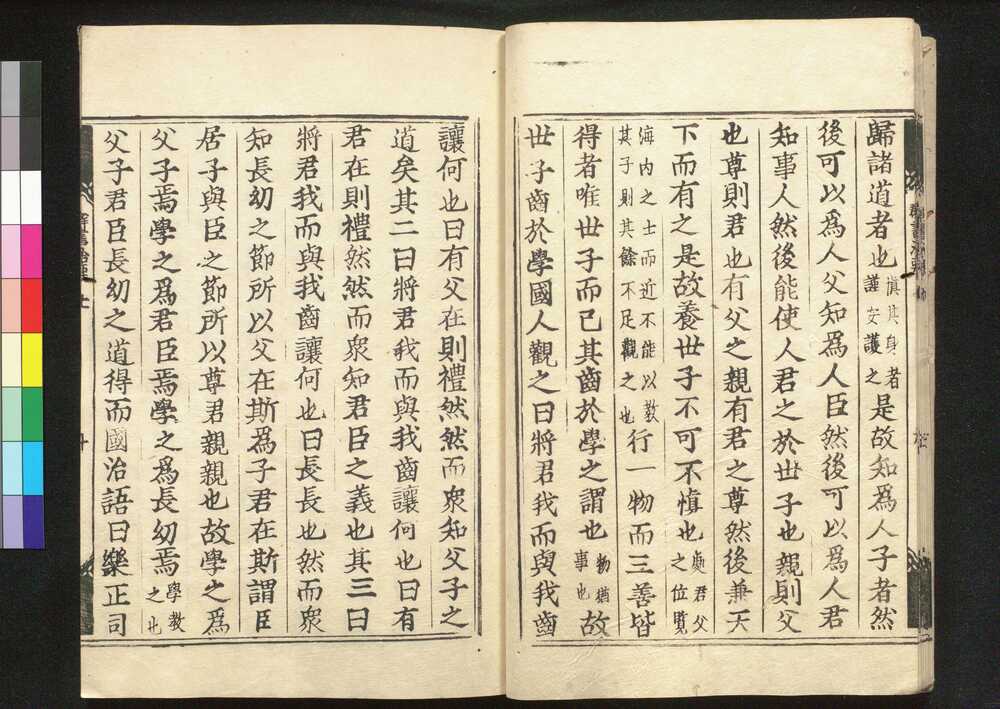 歸諸道者也慎其身者謹安護之是故知為人子者然
後可以為人父知為人臣然後可以為人君
知事人然後能使人君之於世子也親則父
也尊則君也有父之親有君之尊然後兼天
下而有之是故養世子不可不慎也處君父之位覽
海内之士而近不能以教其子則其餘不足觀之也行一物而三善皆
得者唯世子而已其齒於學之謂也物猶事也故
世子齒於學國人觀之曰將君我而與我齒
讓何也曰有父在則禮然然而衆知父子之
道矣其二曰將君我而與我齒讓何也曰有
君在則禮然然而衆知君臣之義也其三曰
將君我而與我齒讓何也曰長長也然而衆
知長幼之節所以父在斯為子君在斯謂臣
居子與臣之節所以尊君親親也故學之為
父子焉學之為君臣焉學之為長幼焉學教之也
父子君臣長幼之道得而國治語曰樂正司